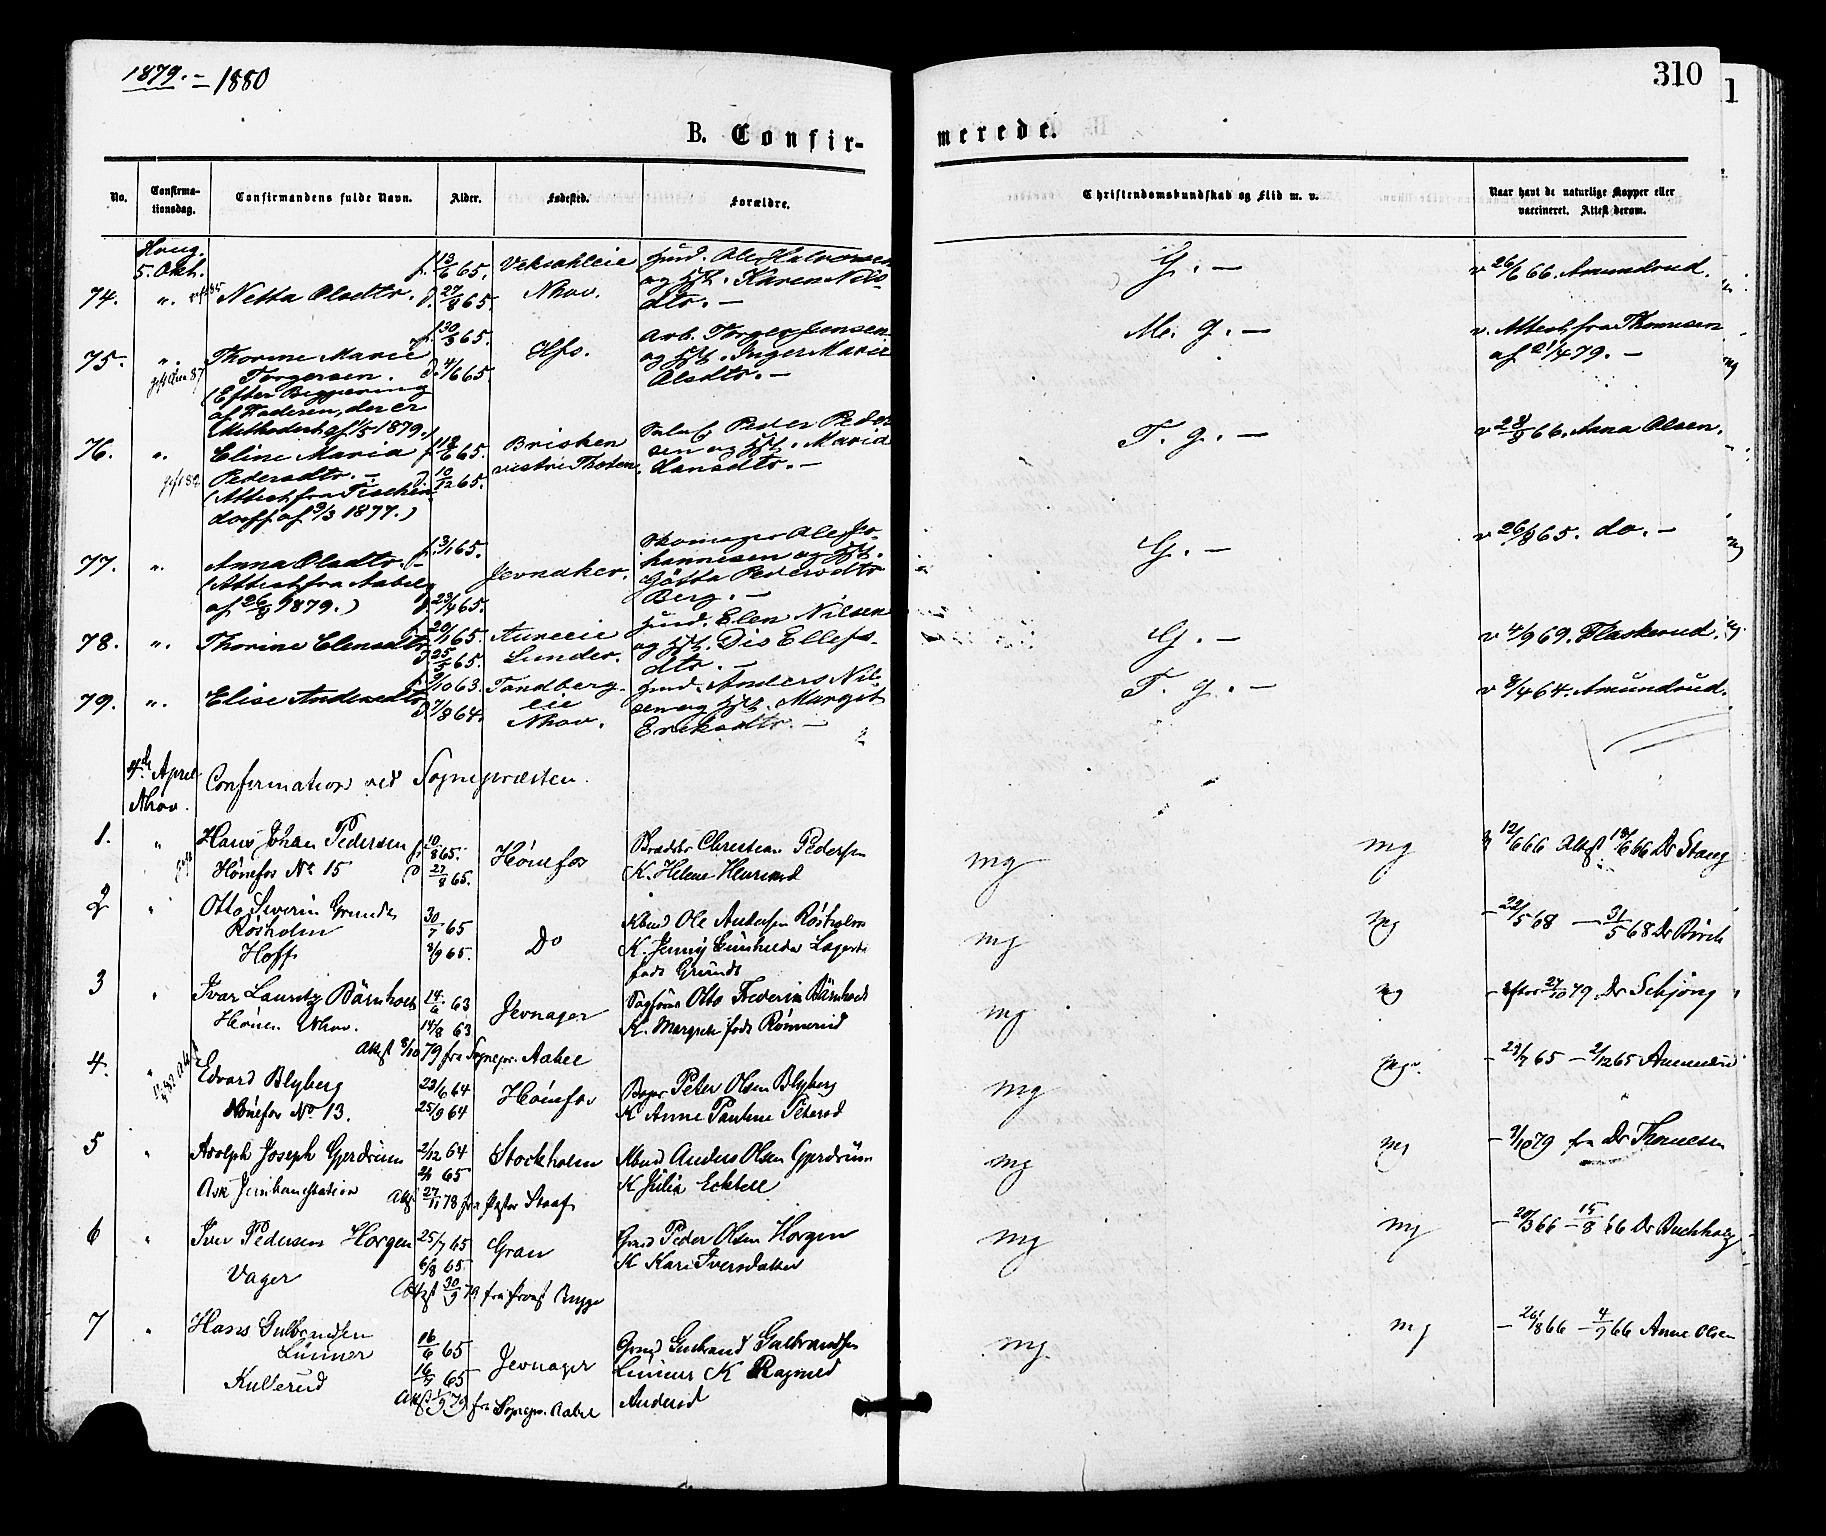 1879. - 1880
310
1
B. Confir-
merede.
No.
Confirma-
tionsdag.
Confirmandens fulde Navn.
Alder.
Fødested.
Forældre.
Christendomskundskab og Flid m. v.
Naar havt de naturlige Kopper eller
vaccineret. Attest derom.
Haug.
5. Okt.
74. ". Netta Olsdtr. f. 13/6 65. d. 27/8 65. Veksaleie
Nhov.
Hmd. Ole Halvorsen
og Hst. Karen Nils-
dtr. -
G. -
v 26/6 66. Amundrud.
75. ". Thorine Marie
Torgersen.
(Efter Begjæring
af Faderen, der er
Methodist af 1/5 1879.)
f. 30/3 65.
d. 4/6 65.
Hfs.
Arb. Torger Jonsen
og Hst. Inger Marie
Olsdtr. -
M. g. -
v. Attest fra Thomesen
af 21/4 79. -
76. ". Eline Maria
Pedersdtr. -
(Attest fra Tischen-
dorff af 9/3 1877.)
d. 10/12 65.
Brisken
vestre Thoten.
Peder Peder-
sen og Hst. Maria
Hansdtr. -
T. g. -
v 28/9 66. Anna Olsen.
77. ". Anna Olsdtr. -
(Attest fra Aabel
af 26/9 1879.)
f. 3/1 65.
d. 23/4 65.
Jevnaker.
Skomager Ole Jo-
hannesen og Hst.
Gøtta Pedersdtr
Berg. -
G. -
v 26/8 65. do. -
78. ". Thorine Elensdtr
20/1 65.
d. 25/5 65.
Aureeie
Lunder.
Hmd. Elen Nilsen
og Hst. Dis Ellefs-
dtr. -
G. -
v 4/9 69. Flaskerud.
79. ". Elise Andersdtr
f 9/10 63.
d 7/8 64.
Tandberg-
eie
Nhov.
Hmd. Anders Nil-
sen og Hst. Margit
Eriksdtr. -
T. g. -
v 8/4 64. Amundrud.
4de April
Nhov.
Confirmation ved Sognepræsten.
1. " Hans Johan Pedersen
Hønefos No 15
f 10/8 65.
d 27/8 65.
Hønefos
Christian Pedersen
K. Helene Hansd
mg
mg
12/6 66 Attest 18/6 66 Dr Stang
2 " Otto Severin Grundt
Røsholm
Hoffs
30/7 65
3/9 65.
Do
Kbmd Ole Andersen Røsholm
K. Jenny Gunhilda
født Grundt
mg
mg
- 22/5 68 - 31/5 68 Dr Birch
3 " Ivar Lauritz Bärnholdt
Hønen Nhov.
14/6 63
14/8 63
Jevnager
Otto Frederik Bärnholdt
K. Margrete født Rønnerud
Attest 8/10 79 fra Sognepr. Aabel
mg
mg
- efter 27/10 79. Dr Schjøng
4. " Edvard Blyberg
Hønefos No 13.
23/6 64
25/9 64
Hønefos
Bager Peter Olsen Blyberg
K Anne Pauline Petersd
mg
mg.
- 23/7 65 - 2/12 65 Amundrud
5 " Adolph Joseph Gjerdrum
Ask Jernbanestation
2/12 64
2/1 65
Stockholm
Kbmd Anders Olsen Gjerdrum
K Julia Eckbell
Attest 27/11 78 fra Pastor Staaf
mg
mg
- 9/10 79 fra Dr Thomesen
6 " Iver Pedersen Horgen
Vager
25/7 65
6/8 65.
Gran
Grmd Peder Olsen Horgen
K Kari Iversdatter
Attest 30/9 79 fra Provst Bugge
mg
mg
- 20/3 66 - 15/8 66 Dr Buchholtz
7 " Hans Gulbrandsen
Lunner
Kullerud
16/6 65
16/7 65
Jevnager
Grmd Gulbrand Gulbrandsen
Lunner K Ragnild
Andersd
Attest 1/9 79 fra Sognepr. Aabel
mg.
mg
- 26/8 66 - 4/9 66 Anne Olsen